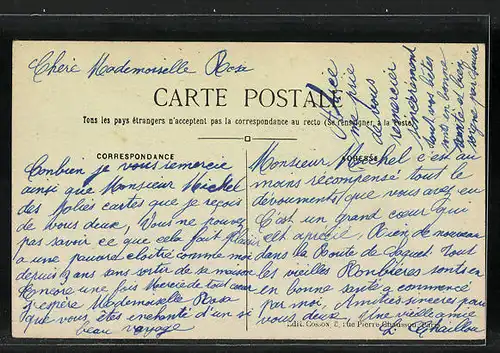 Cheré Mademoiselle Rose
CARTE POSTALE
Tous les pays étrangers n'acceptent pas la correspondance au recto (Se renseigner à la poste)
CORRESPONDANCE
Conbien je vous remercie
ainsi que Monsieur Michel
des Jolies cartes que je reçois
de vous deux, Vous ne pouvez
pas savoir ce que cela fait plaisir
a une pauvre comme moi
depuis 3 ans sans sortir de sa maison
Encore une fois Merci de tout coeur
J'espère Mademoiselle Rose
que vous êtes enchanté d'un si
beau voyage
ADRESSE
Monsieur Michel c'est au
moins récompensé tout le
dévouments, que vous avez eu
C'est un grand coeur qui
est apreçié. Rien de nouveau
dans la Route de Tout
les vieilles sont en
en bonne santé a commencé
par moi, Amitiés sincères pour
vous deux, Une vieille amie
Alice
me prie
de vous
remercier
sincèrement
tout vos bêtes
sont en bonne
santé et bien
soigné par
Edit. Cosson, 5, rue Pierre Chausson, Paris